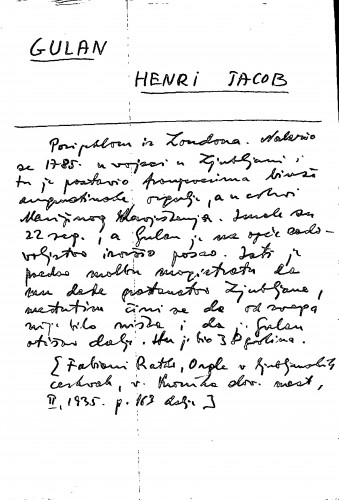 GULAN
HENRI JACOB
Porijeklom iz Londona. Nalazio
se 1785. u vojsci u Ljubljani i
tu je postavio franjevcima bivše
augustinske orgulje, a u crkvi
Marijinog Navještenja. Imale su
22 reg., a Gulan je na opće zado-
voljstvo izvršio posao. Isti je
predao molbu magistratu da
mu dade građanstvo Ljubljane,
međutim čini se da od svega
nije bilo ništa i da je Gulan
otišao dalje. Star je bio 38 godina.
[Fabiani Ratko, Orgle v ljubljanskih
cerkvah, v. Kronika slov. mest,
II, 1935. p. 163 dalje]